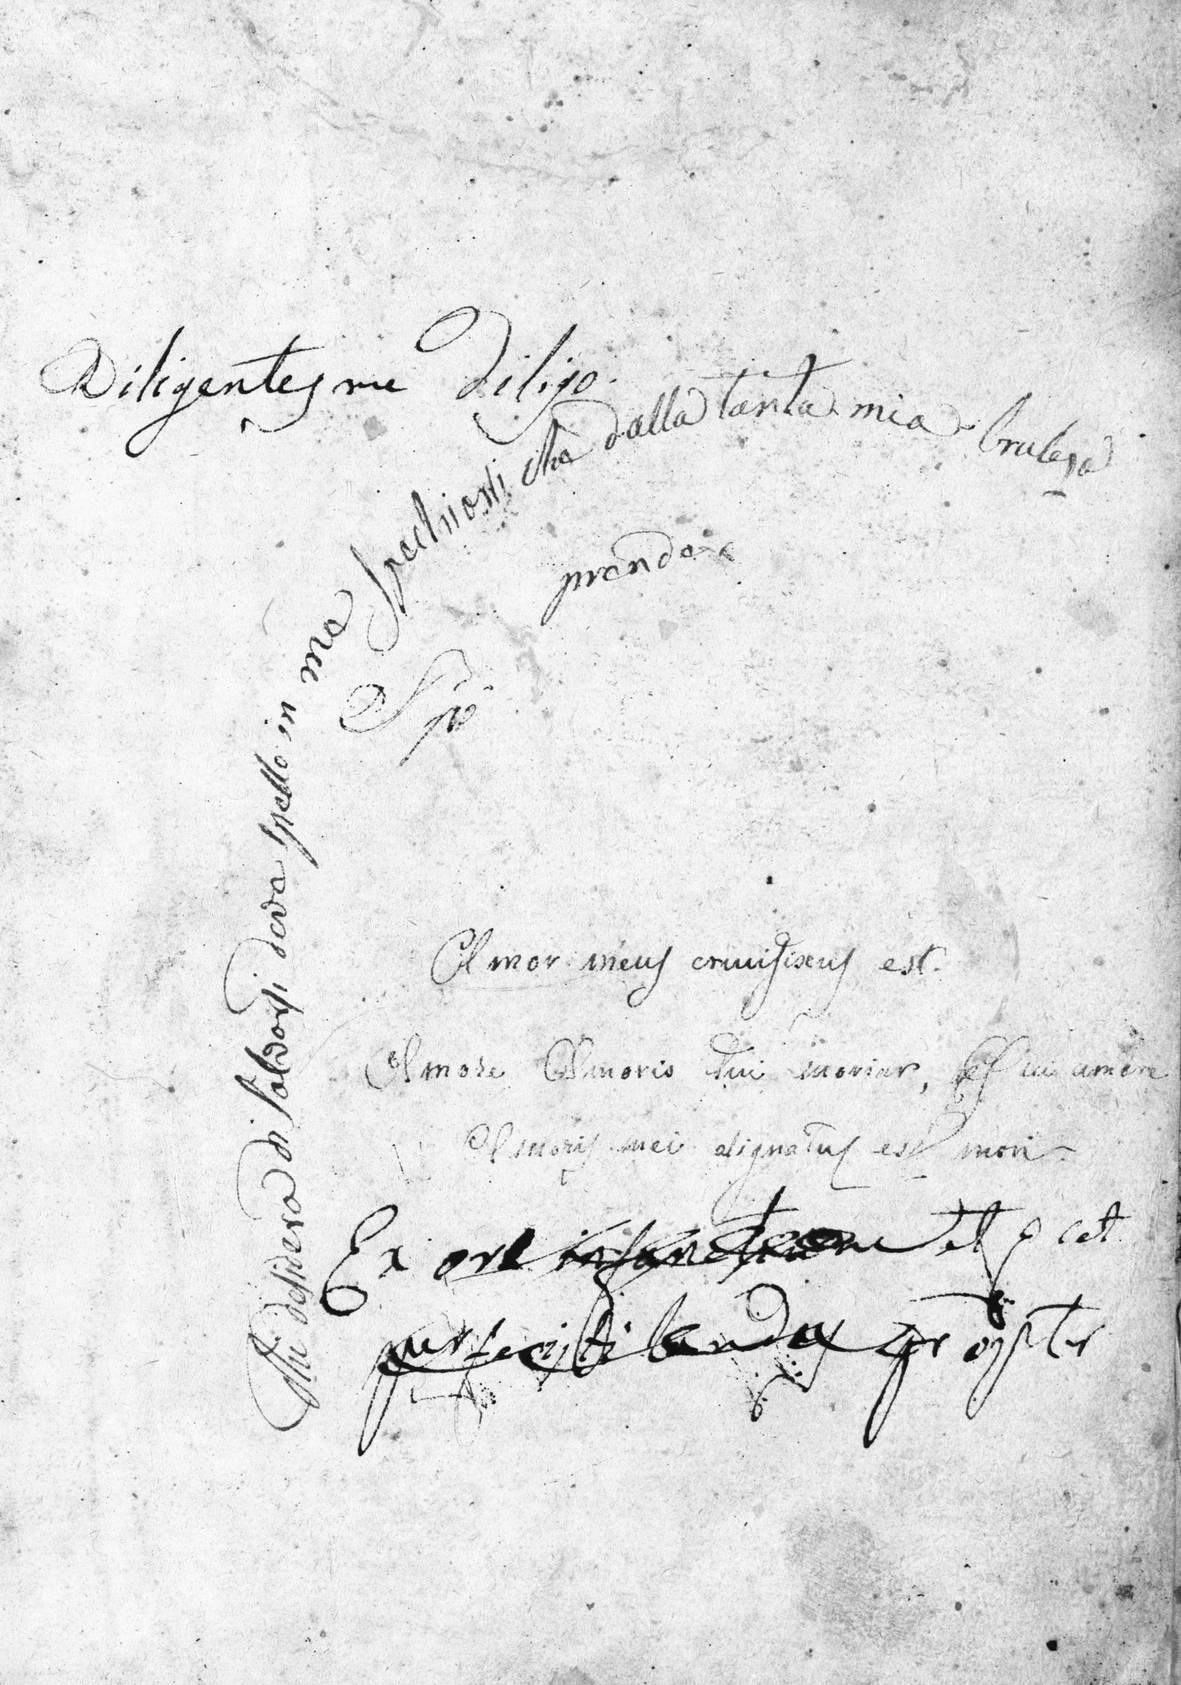 Diligentes me diligo.
Chi desidera di saldarsi deva spello in me spechiorsi che dalla tanta mia
prendere
Amor meus crucifixus est.
Amore Amoris tui moriar, qui amore
Amoris mei dignatus est mori.
Ex ore infantium et
perfecisti laudes propter